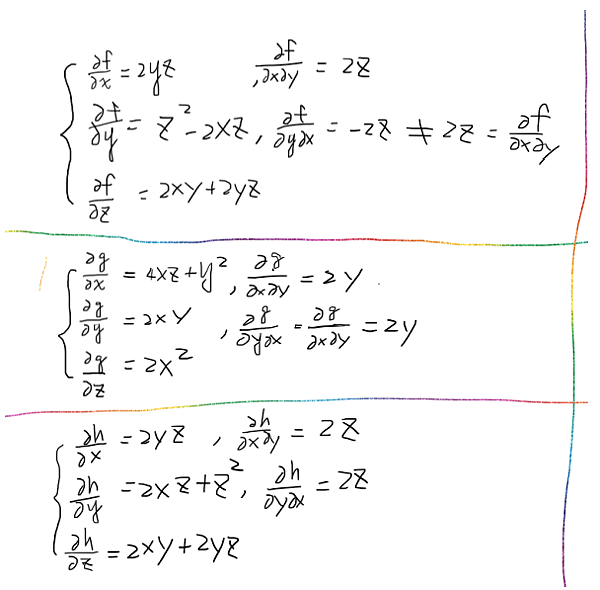 ∂f/∂x = 2yz , ∂f/∂x∂y = 2z
∂f/∂y = z² - 2xz , ∂f/∂y∂x = -2z ≠ 2z = ∂f/∂x∂y
∂f/∂z = 2xy + 2yz
∂g/∂x = 4xz + y² , ∂g/∂x∂y = 2y
∂g/∂y = 2xy , ∂g/∂y∂x = ∂g/∂x∂y = 2y
∂g/∂z = 2x²
∂h/∂x = 2yz , ∂h/∂x∂y = 2z
∂h/∂y = 2xz + z² , ∂h/∂y∂x = 2z
∂h/∂z = 2xy + 2yz